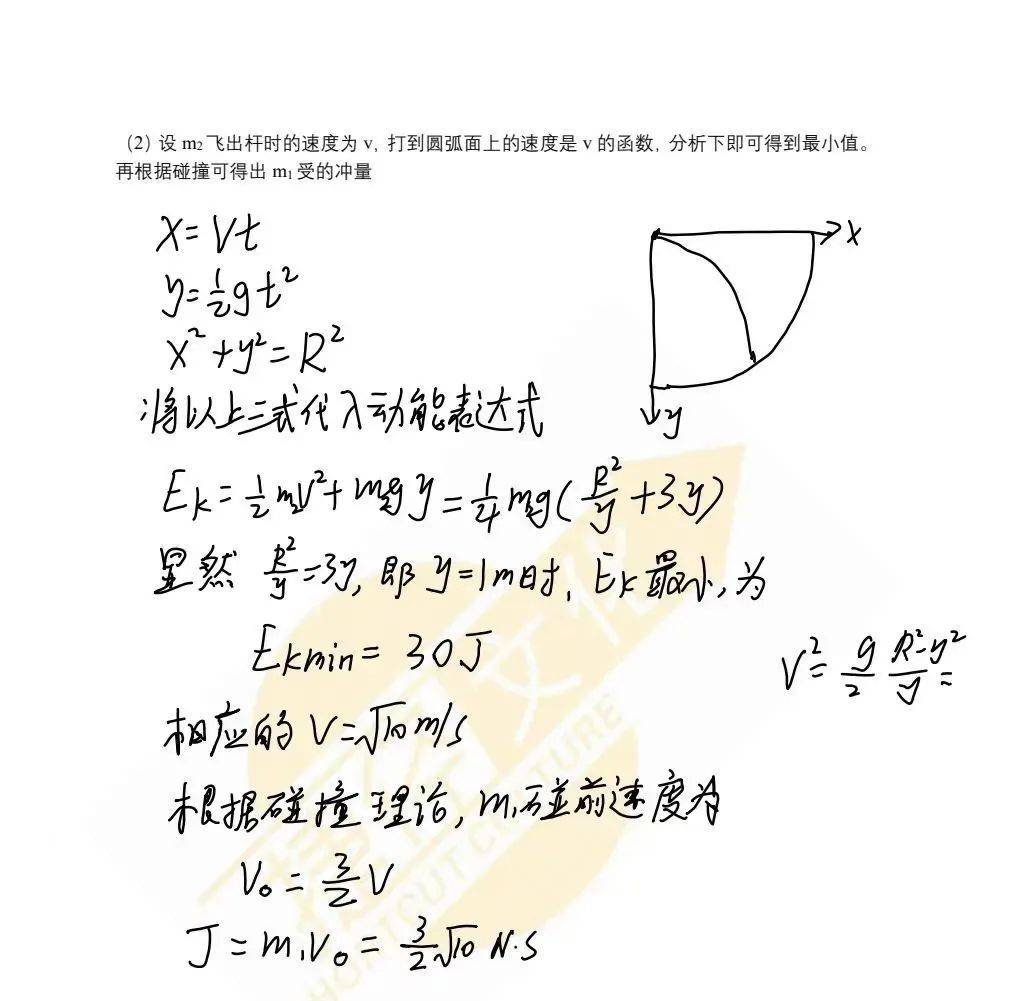 (2) 设 m₂ 飞出杆时的速度为 v, 打到圆弧面上的速度是 v 的函数, 分析下即可得到最小值。
再根据碰撞可得出 m₁ 受的冲量
x = Vt
y = ½gt²
x² + y² = R²
x
y
将以上三式代入动能表达式
Eₖ = ½m₂V² + m₂gy = ¼m₂g(R²/y + 3y)
显然 R²/y = 3y, 即 y = 1m时, Eₖ最小, 为
Eₖmin = 30J
V² = g/2 (R²-y²)/y =
相应的 V = √10 m/s
根据碰撞理论, m₁碰前速度为
V₀ = 3/2 V
J = m₁V₀ = 3/2 √10 N·S